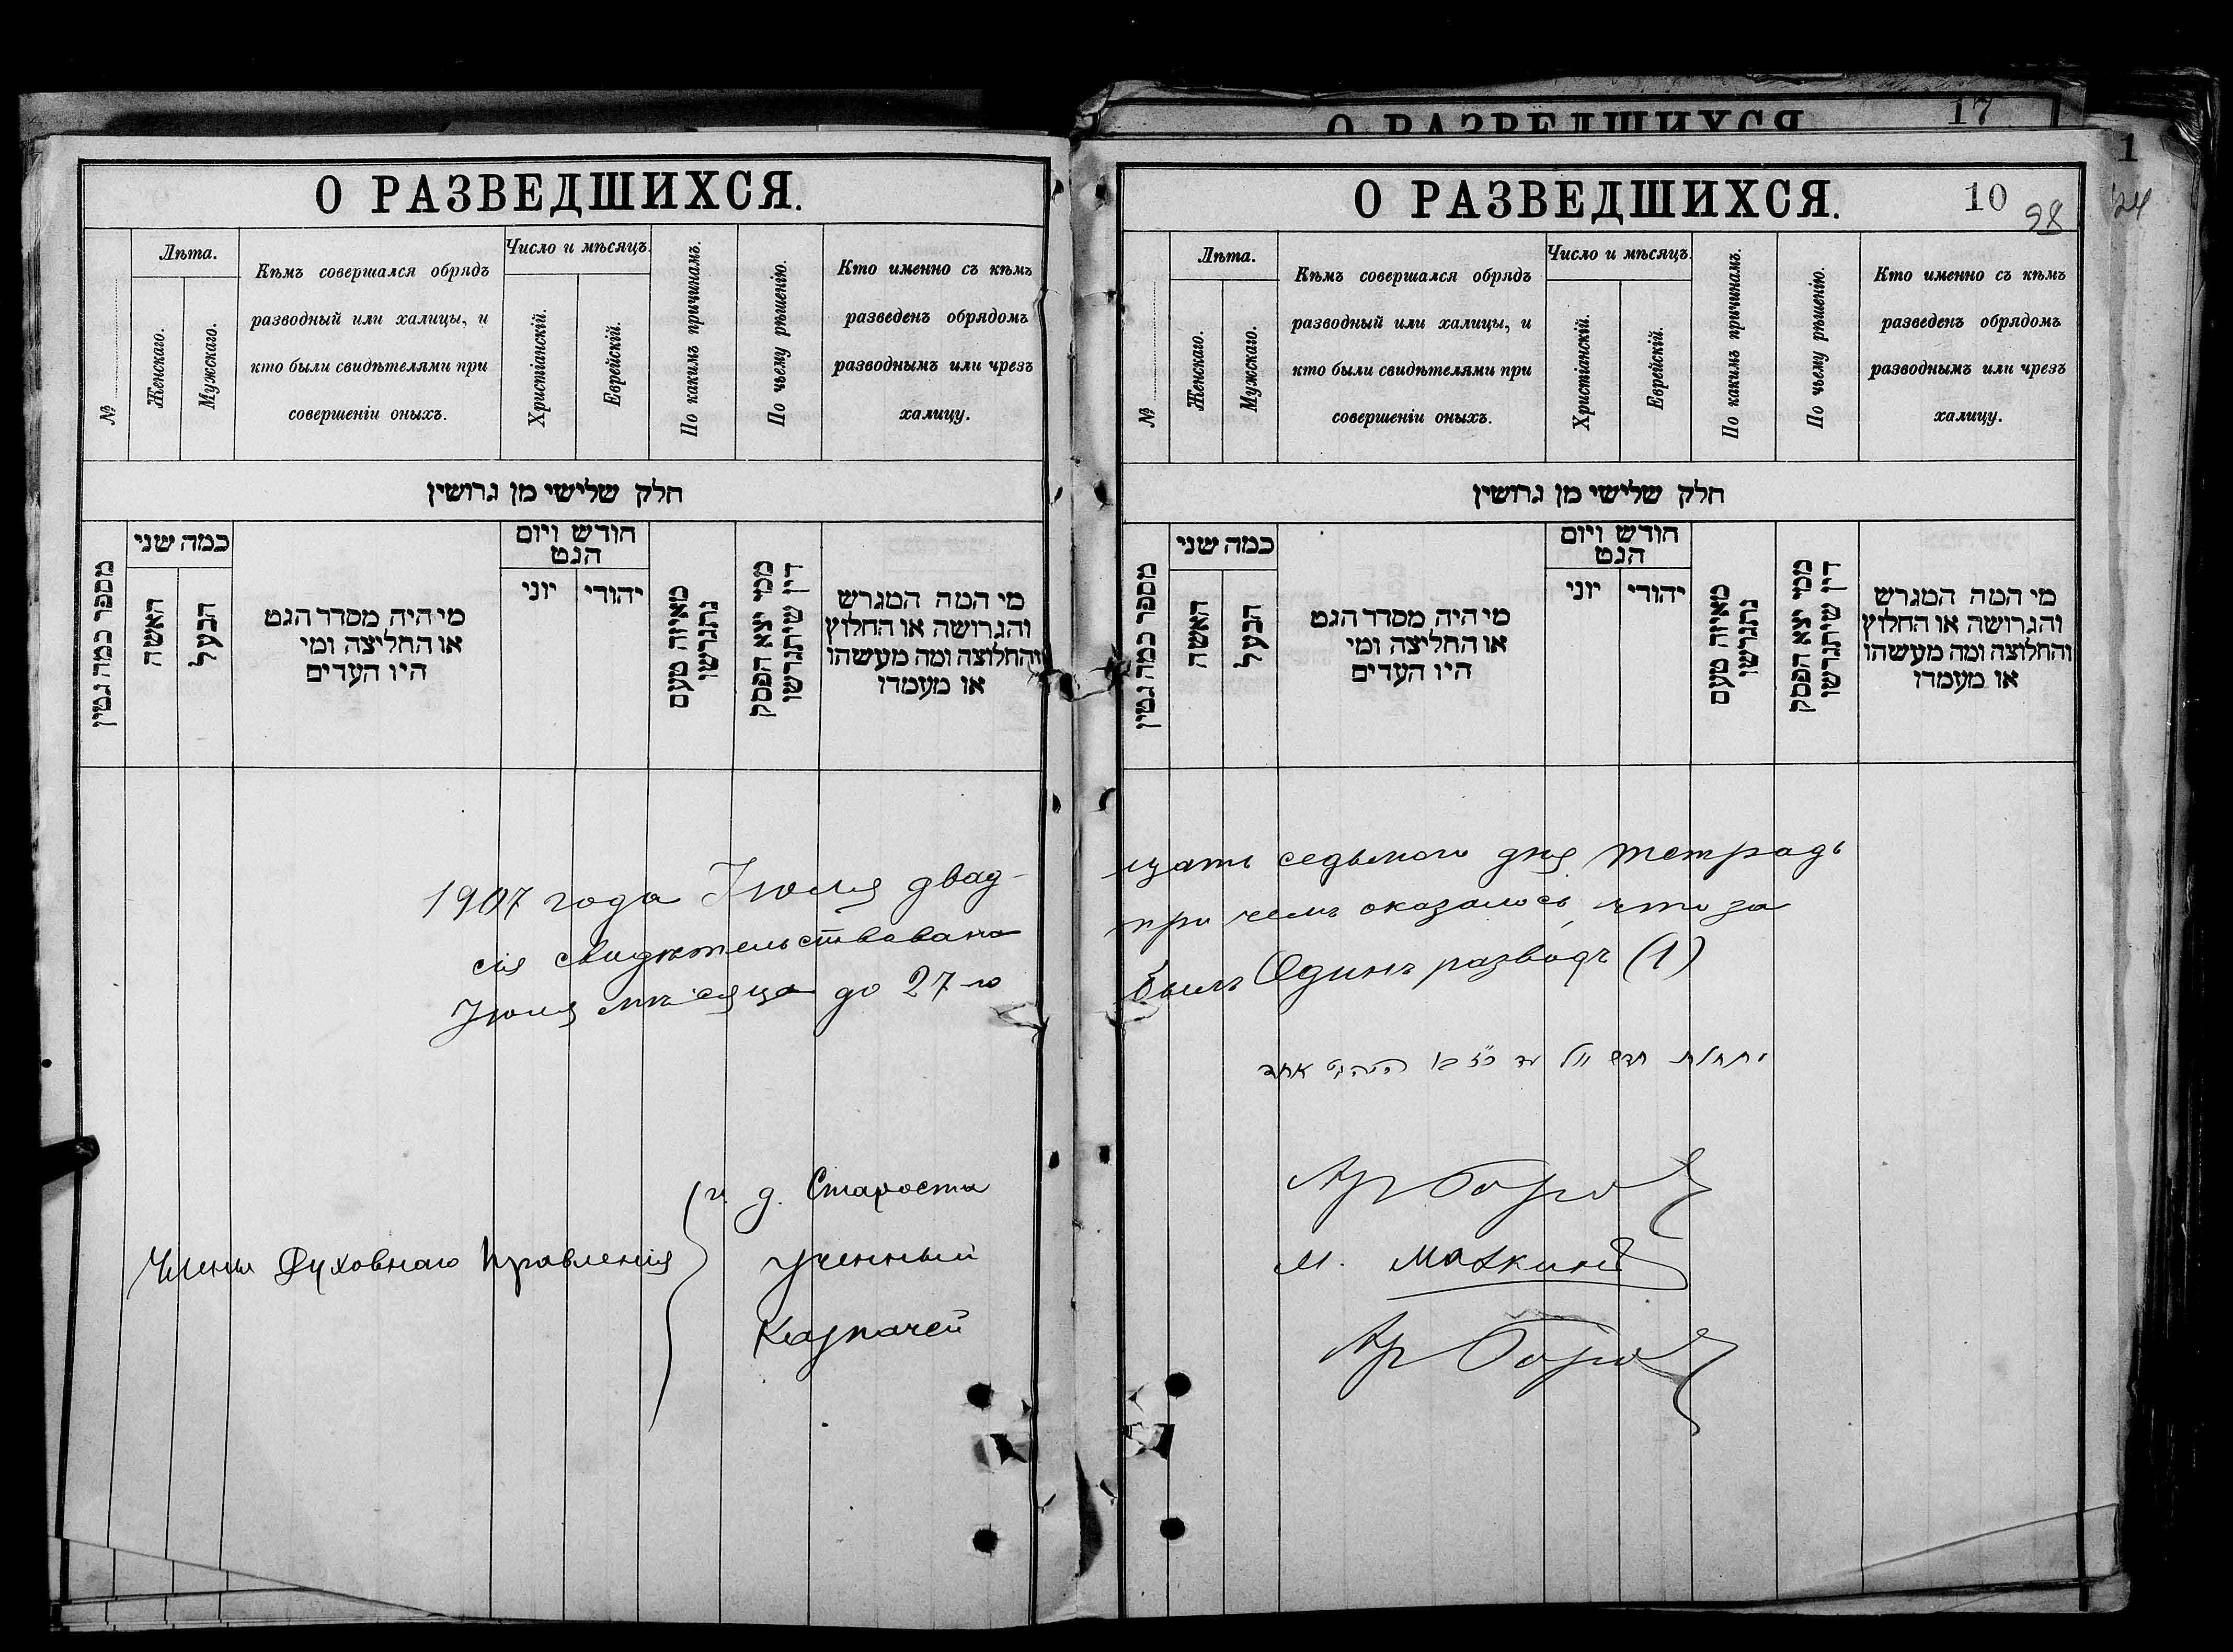 О РАЗВЕДШИХСЯ.
№
Лѣта.
Женскаго.
Мужскаго.
Кѣмъ совершался обрядъ
разводный или халицы, и
кто были свидѣтелями при
совершеніи оныхъ.
Число и мѣсяцъ.
Христіанскій.
Еврейскій.
По какимъ причинамъ.
По чьему рѣшенію.
Кто именно съ кѣмъ
разведенъ обрядомъ
разводнымъ или чрезъ
халицу.
חלק שלישי מן גרושין
מספר כמה גטין
כמה שני
האשה
הבעל
מי היה מסדר הגט
או החליצה ומי
היו העדים
חודש ויום
הגט
יוני
יהודי
מאיזה טעם
נתגרשו
ממי יצא הפסק
דין שיתגרשו
מי המה המגרש
והגרושה או החלוץ
והחלוצה ומה מעשהו
או מעמדו
1907 года Іюля двад-
сія свидѣтельствована
Іюля мѣсяца до 27-го
Члены Духовнаго Правленія
и. д. Старосты
Ученный
Казначей
О РАЗВЕДШИХСЯ. 17
1
О РАЗВЕДШИХСЯ. 10 98
24
№
Лѣта.
Женскаго.
Мужскаго.
Кѣмъ совершался обрядъ
разводный или халицы, и
кто были свидѣтелями при
совершеніи оныхъ.
Число и мѣсяцъ.
Христіанскій.
Еврейскій.
По какимъ причинамъ.
По чьему рѣшенію.
Кто именно съ кѣмъ
разведенъ обрядомъ
разводнымъ или чрезъ
халицу.
חלק שלישי מן גרושין
מספר כמה גטין
כמה שני
האשה
הבעל
מי היה מסדר הגט
או החליצה ומי
היו העדים
חודש ויום
הגט
יוני
יהודי
מאיזה טעם
נתגרשו
ממי יצא הפסק
דין שיתגרשו
מי המה המגרש
והגרושה או החלוץ
והחלוצה ומה מעשהו
או מעמדו
цать седьмого дня тетрадь
при чемъ оказалось, что за
былъ Одинъ разводъ (1)
חדש יולי עד כ״ז בו אחד
М.